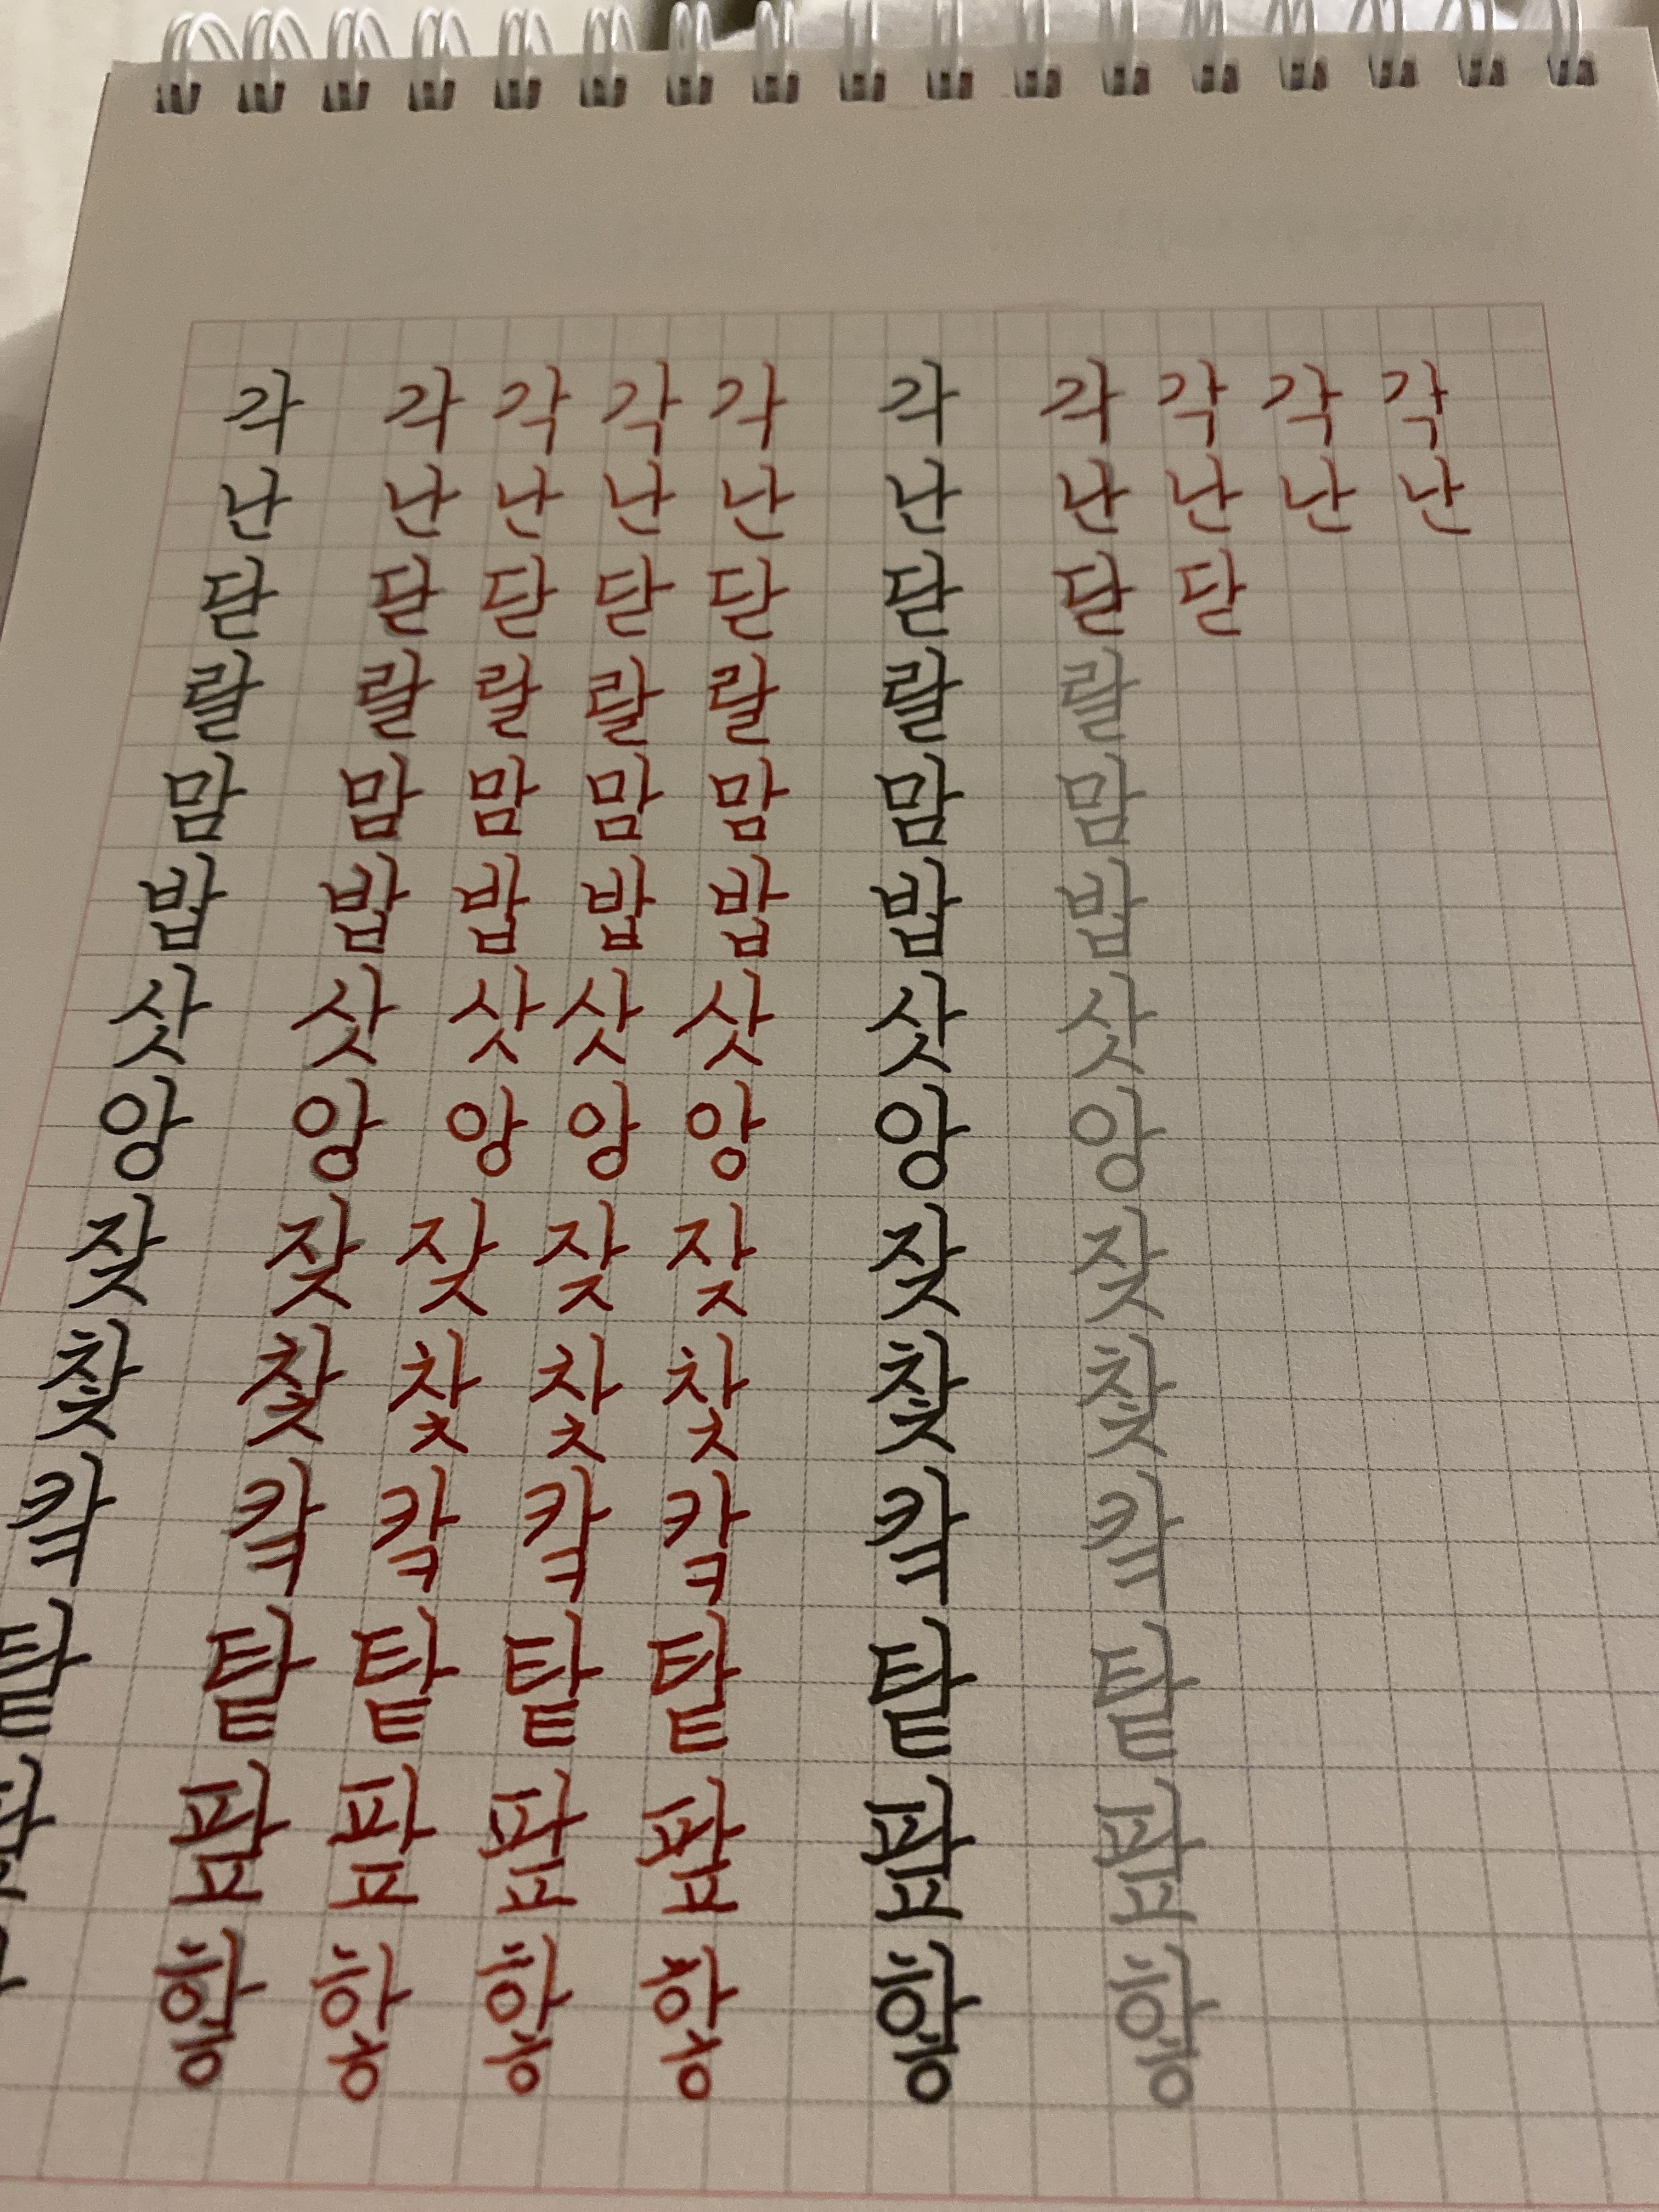 각 각 각 각 각 각 각 각 각 각
난 난 난 난 난 난 난 난 난 난
닫 닫 닫 닫 닫 닫 닫 닫
랄 랄 랄 랄 랄 랄 랄
맘 맘 맘 맘 맘 맘 맘
밥 밥 밥 밥 밥 밥 밥
삿 삿 삿 삿 삿 삿 삿
앙 앙 앙 앙 앙 앙 앙
잦 잦 잦 잦 잦 잦 잦
찿 찿 찿 찿 찿 찿 찿
캌 캌 캌 캌 캌 캌 캌
탙 탙 탙 탙 탙 탙 탙
팦 팦 팦 팦 팦 팦
핳 핳 핳 핳 핳 핳